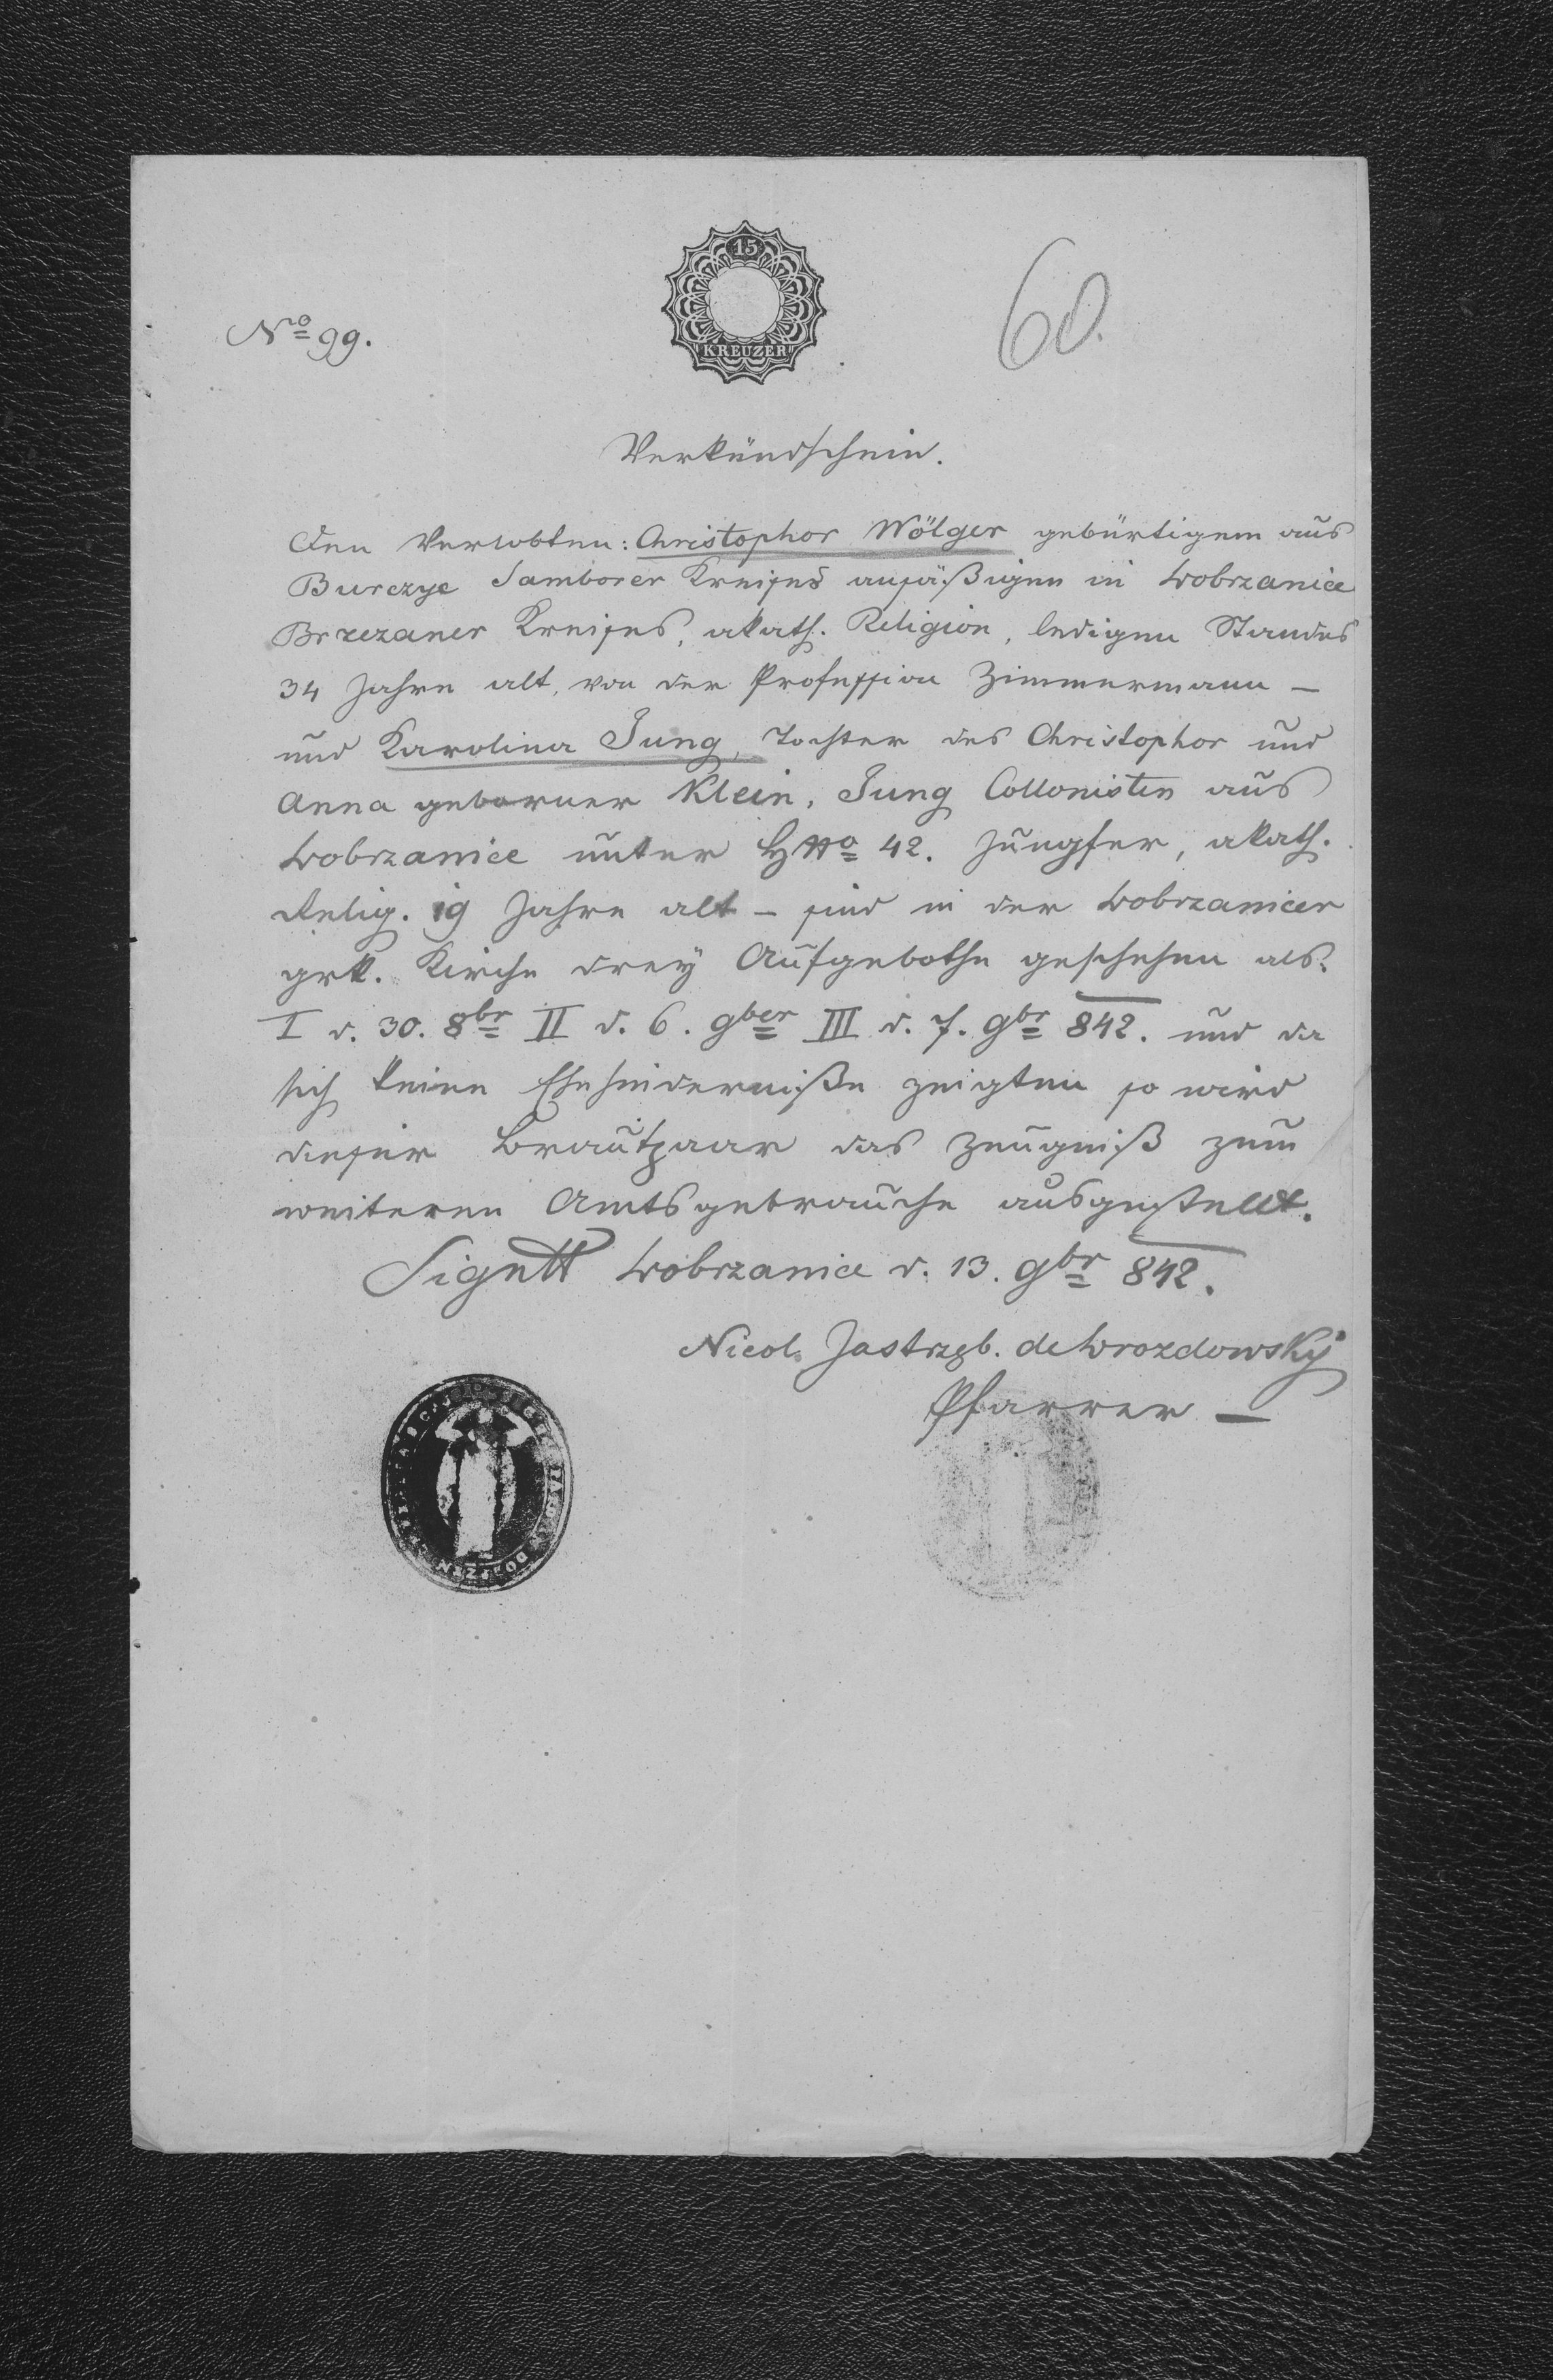 15
KREUZER
60.
No 99.
Verkündschein.
Den Verlobten: Christophor Wölger gebürtigem aus
Burczyc Samborer Kreises ansäßigen in Dobrzanice
Brzezaner Kreises, akath. Religion, ledigen Standes
34 Jahre alt, von der Profession Zimmermann —
und Karolina Jung, Tochter des Christophor und
Anna geborner Klein, Jung Collonisten aus
Dobrzanice unter HNo 42. Jungfer, akath.
Relig. 19 Jahre alt — sind in der Dobrzanicer
grk. Kirche dreÿ Aufgebothe geschehen als.
I d. 30. 8br II d. 6. 9ber III d. 7. 9br 842. und da
sich keine Ehehinderniße zeigten so wird
dieser Brautpaar das Zeugniß zum
weiteren Amtsgebrauche ausgestellt.
Signtt Dobrzanice d. 13. 9br 842.
Nicol. Jastrzęb. de Drozdowskÿ
Pfarrer —